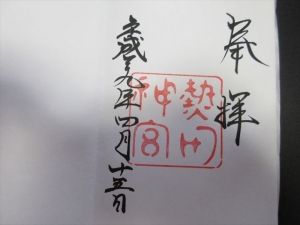 奉拝
熱田神宮
平成二九年四月十五日